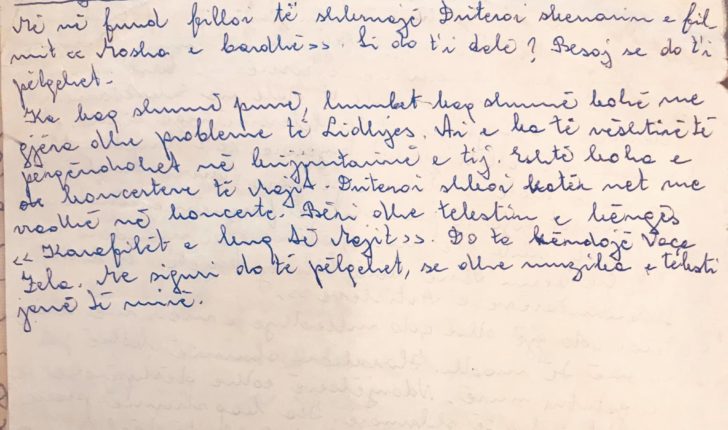 Më në fund filloi të shkruajë Dritëroi skenarin e fil
mit << Rosha e bardhë >>. Si do t'i dalë? Besoj se do t'i
pëlqehet.
Ka kaq shumë punë, humbet kaq shumë kohë me
gjëra dhe probleme të Lidhjes. Ai e ka të vështirë të
përqëndrohet në krijimtarinë e tij. Është koha e
koncerteve të Majit. Dritëroi shkoi katër net me
rradhë në koncerte. Bëri dhe tekstin e këngës
<< Karafilët e kuq të Majit >>. Do ta këndojë Vaçe
Zela. Me siguri do të pëlqehet, se dhe muzika e teksti
janë të mirë.